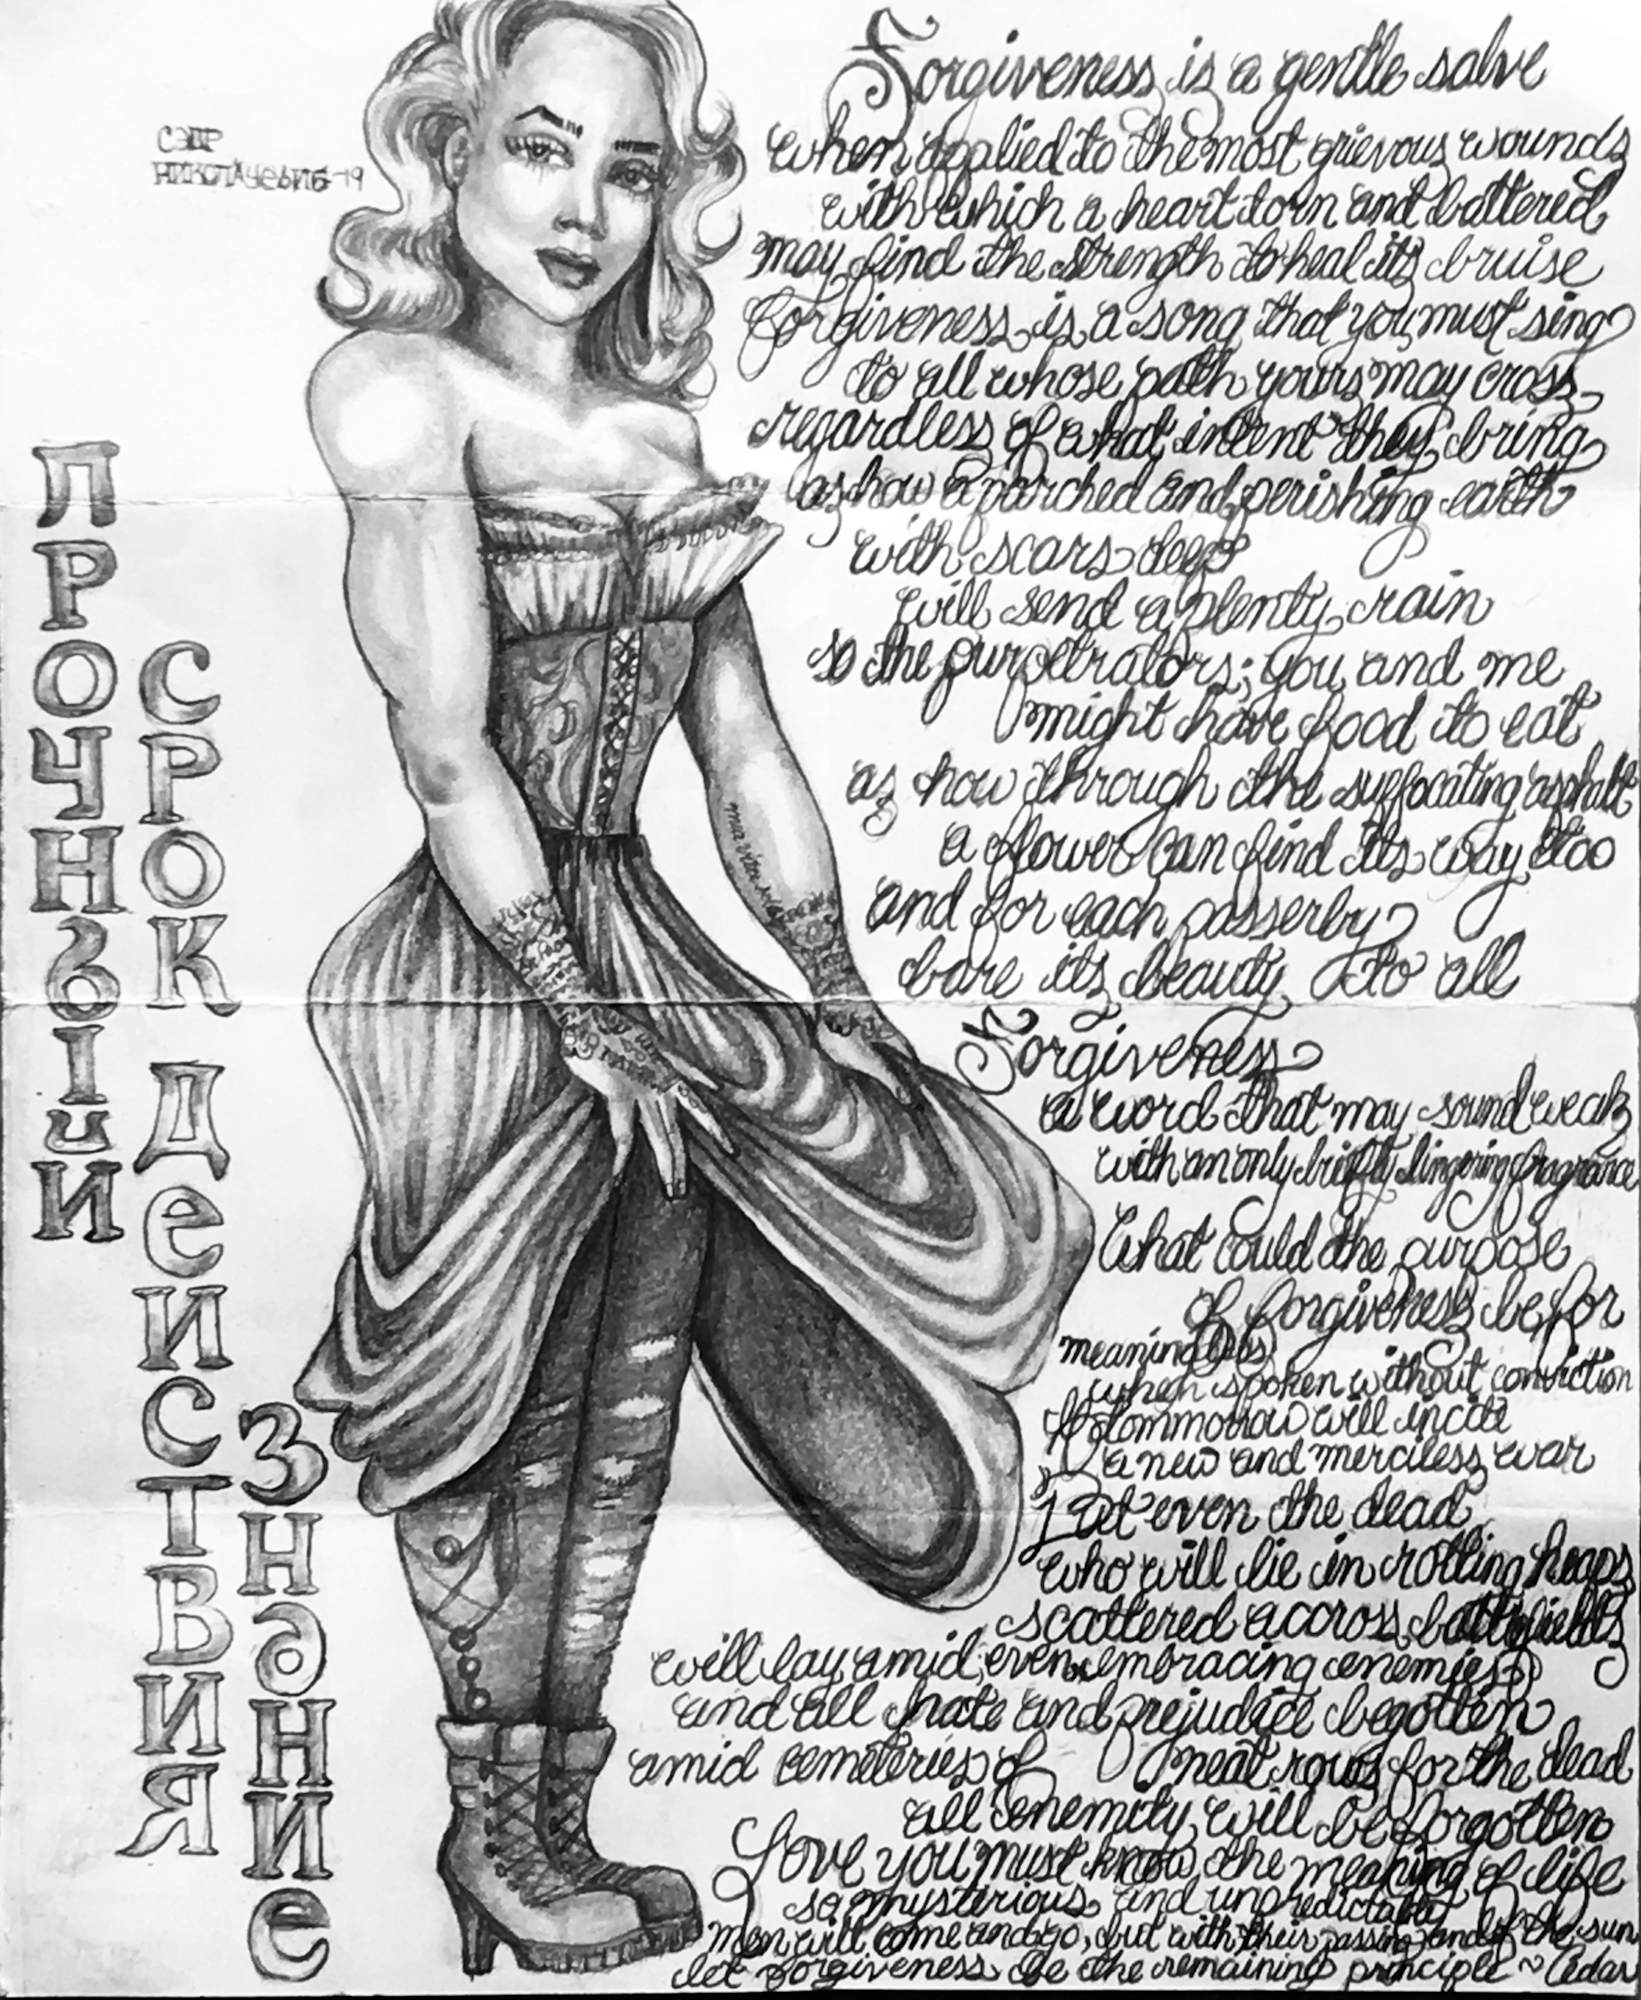 Сэдр
Николачевич-19
Прочный
Срок
действия
знание
Forgiveness is a gentle salve
when applied to the most grievous wounds
with which a heart torn and battered
may find the strength to heal its bruise
forgiveness is a song that you must sing
to all whose path yours may cross
regardless of what intent they bring
as how a parched and perishing earth
with scars deep
will send a plenty rain
so the purpetrators; you and me
might have food to eat
as how through the suffocating asphalt
a flower can find its way too
and for each passerby
bare its beauty to all
Forgiveness
a word that may sound weak
with an only briefly lingering fragrance
What could the purpose
of forgiveness be for
meaningless
when spoken without conviction
If tommorow will incite
a new and merciless war
Let even the dead
who will lie in rotting heaps
scattered accross battlefields
will lay amid, even embracing enemies
and all hate and prejudice begotten
amid cemeteries of neat rows for the dead
all enemity will be forgotten
Love you must know the meaning of life
so mysterious and unpredictable
men will come and go, but with their passing and of the sun
let forgiveness be the remaining principle ~ Cedar
mia vita